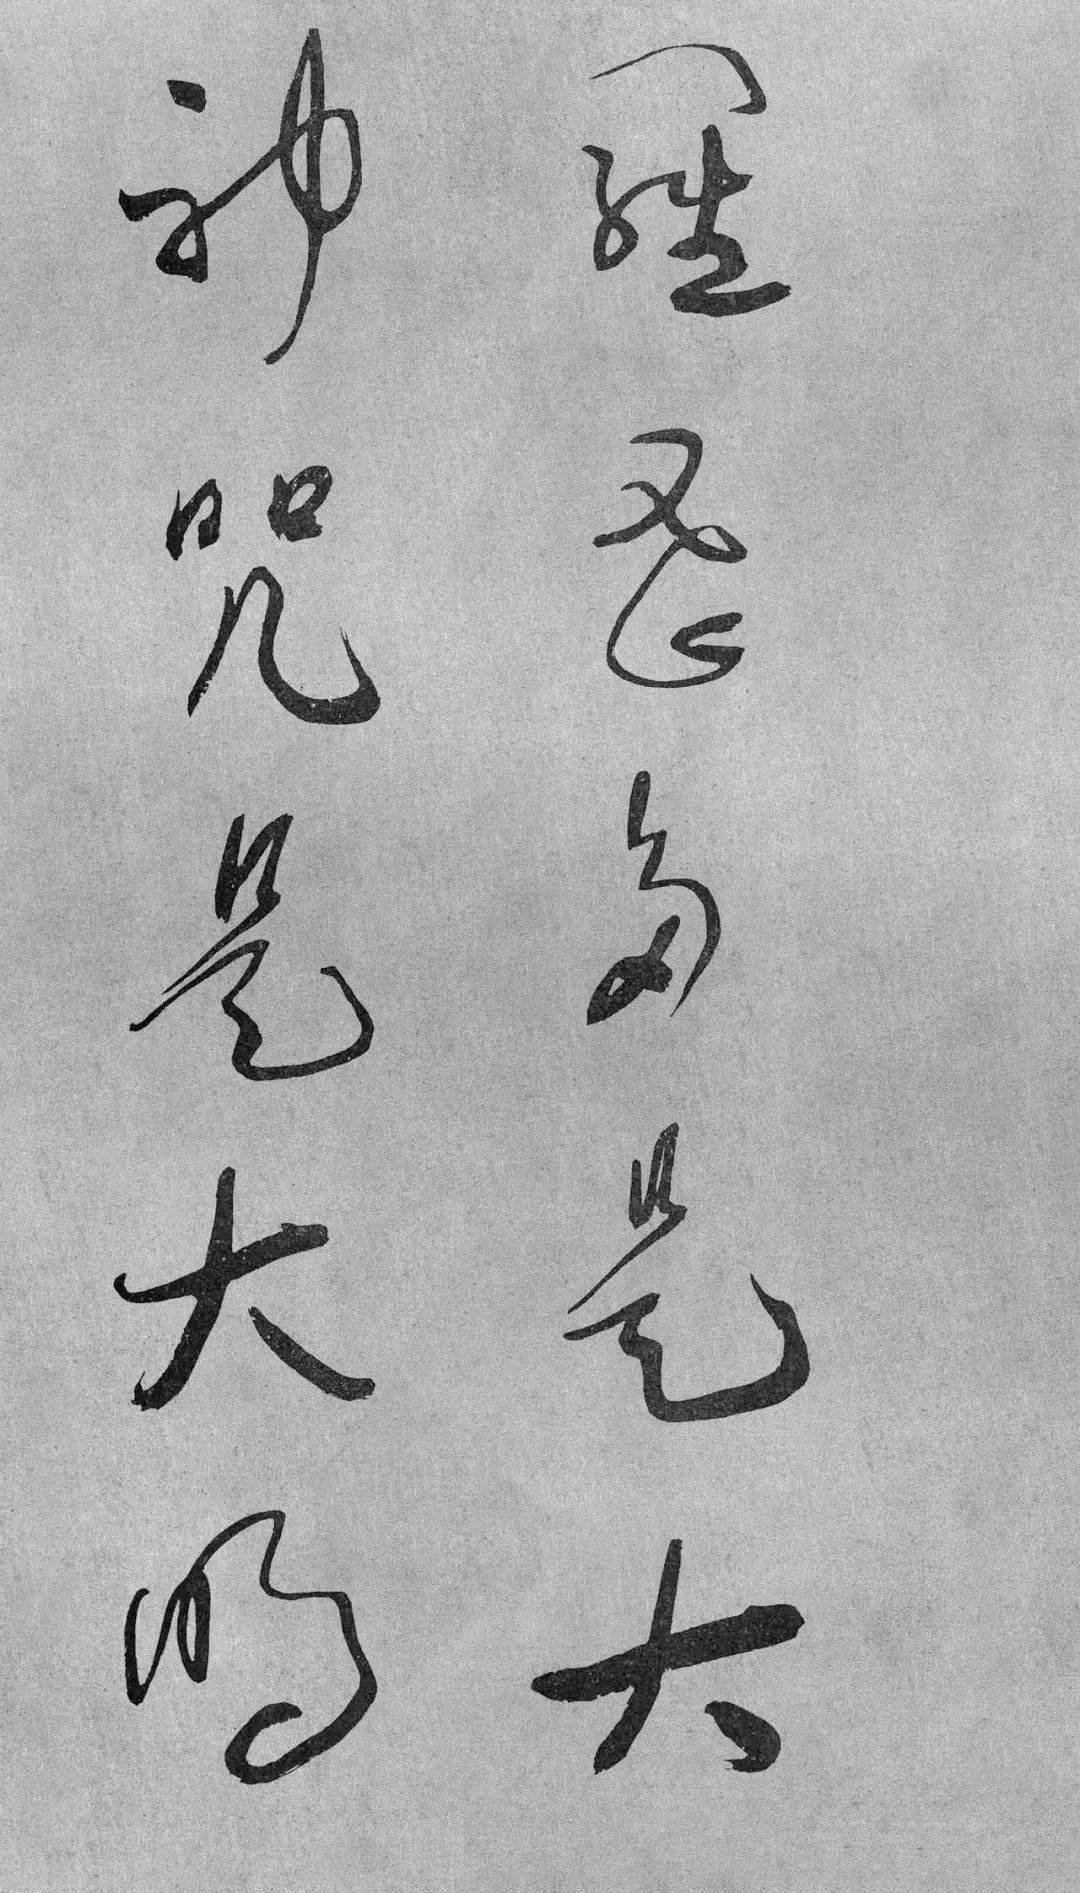 羅蜜多是大
神咒是大明